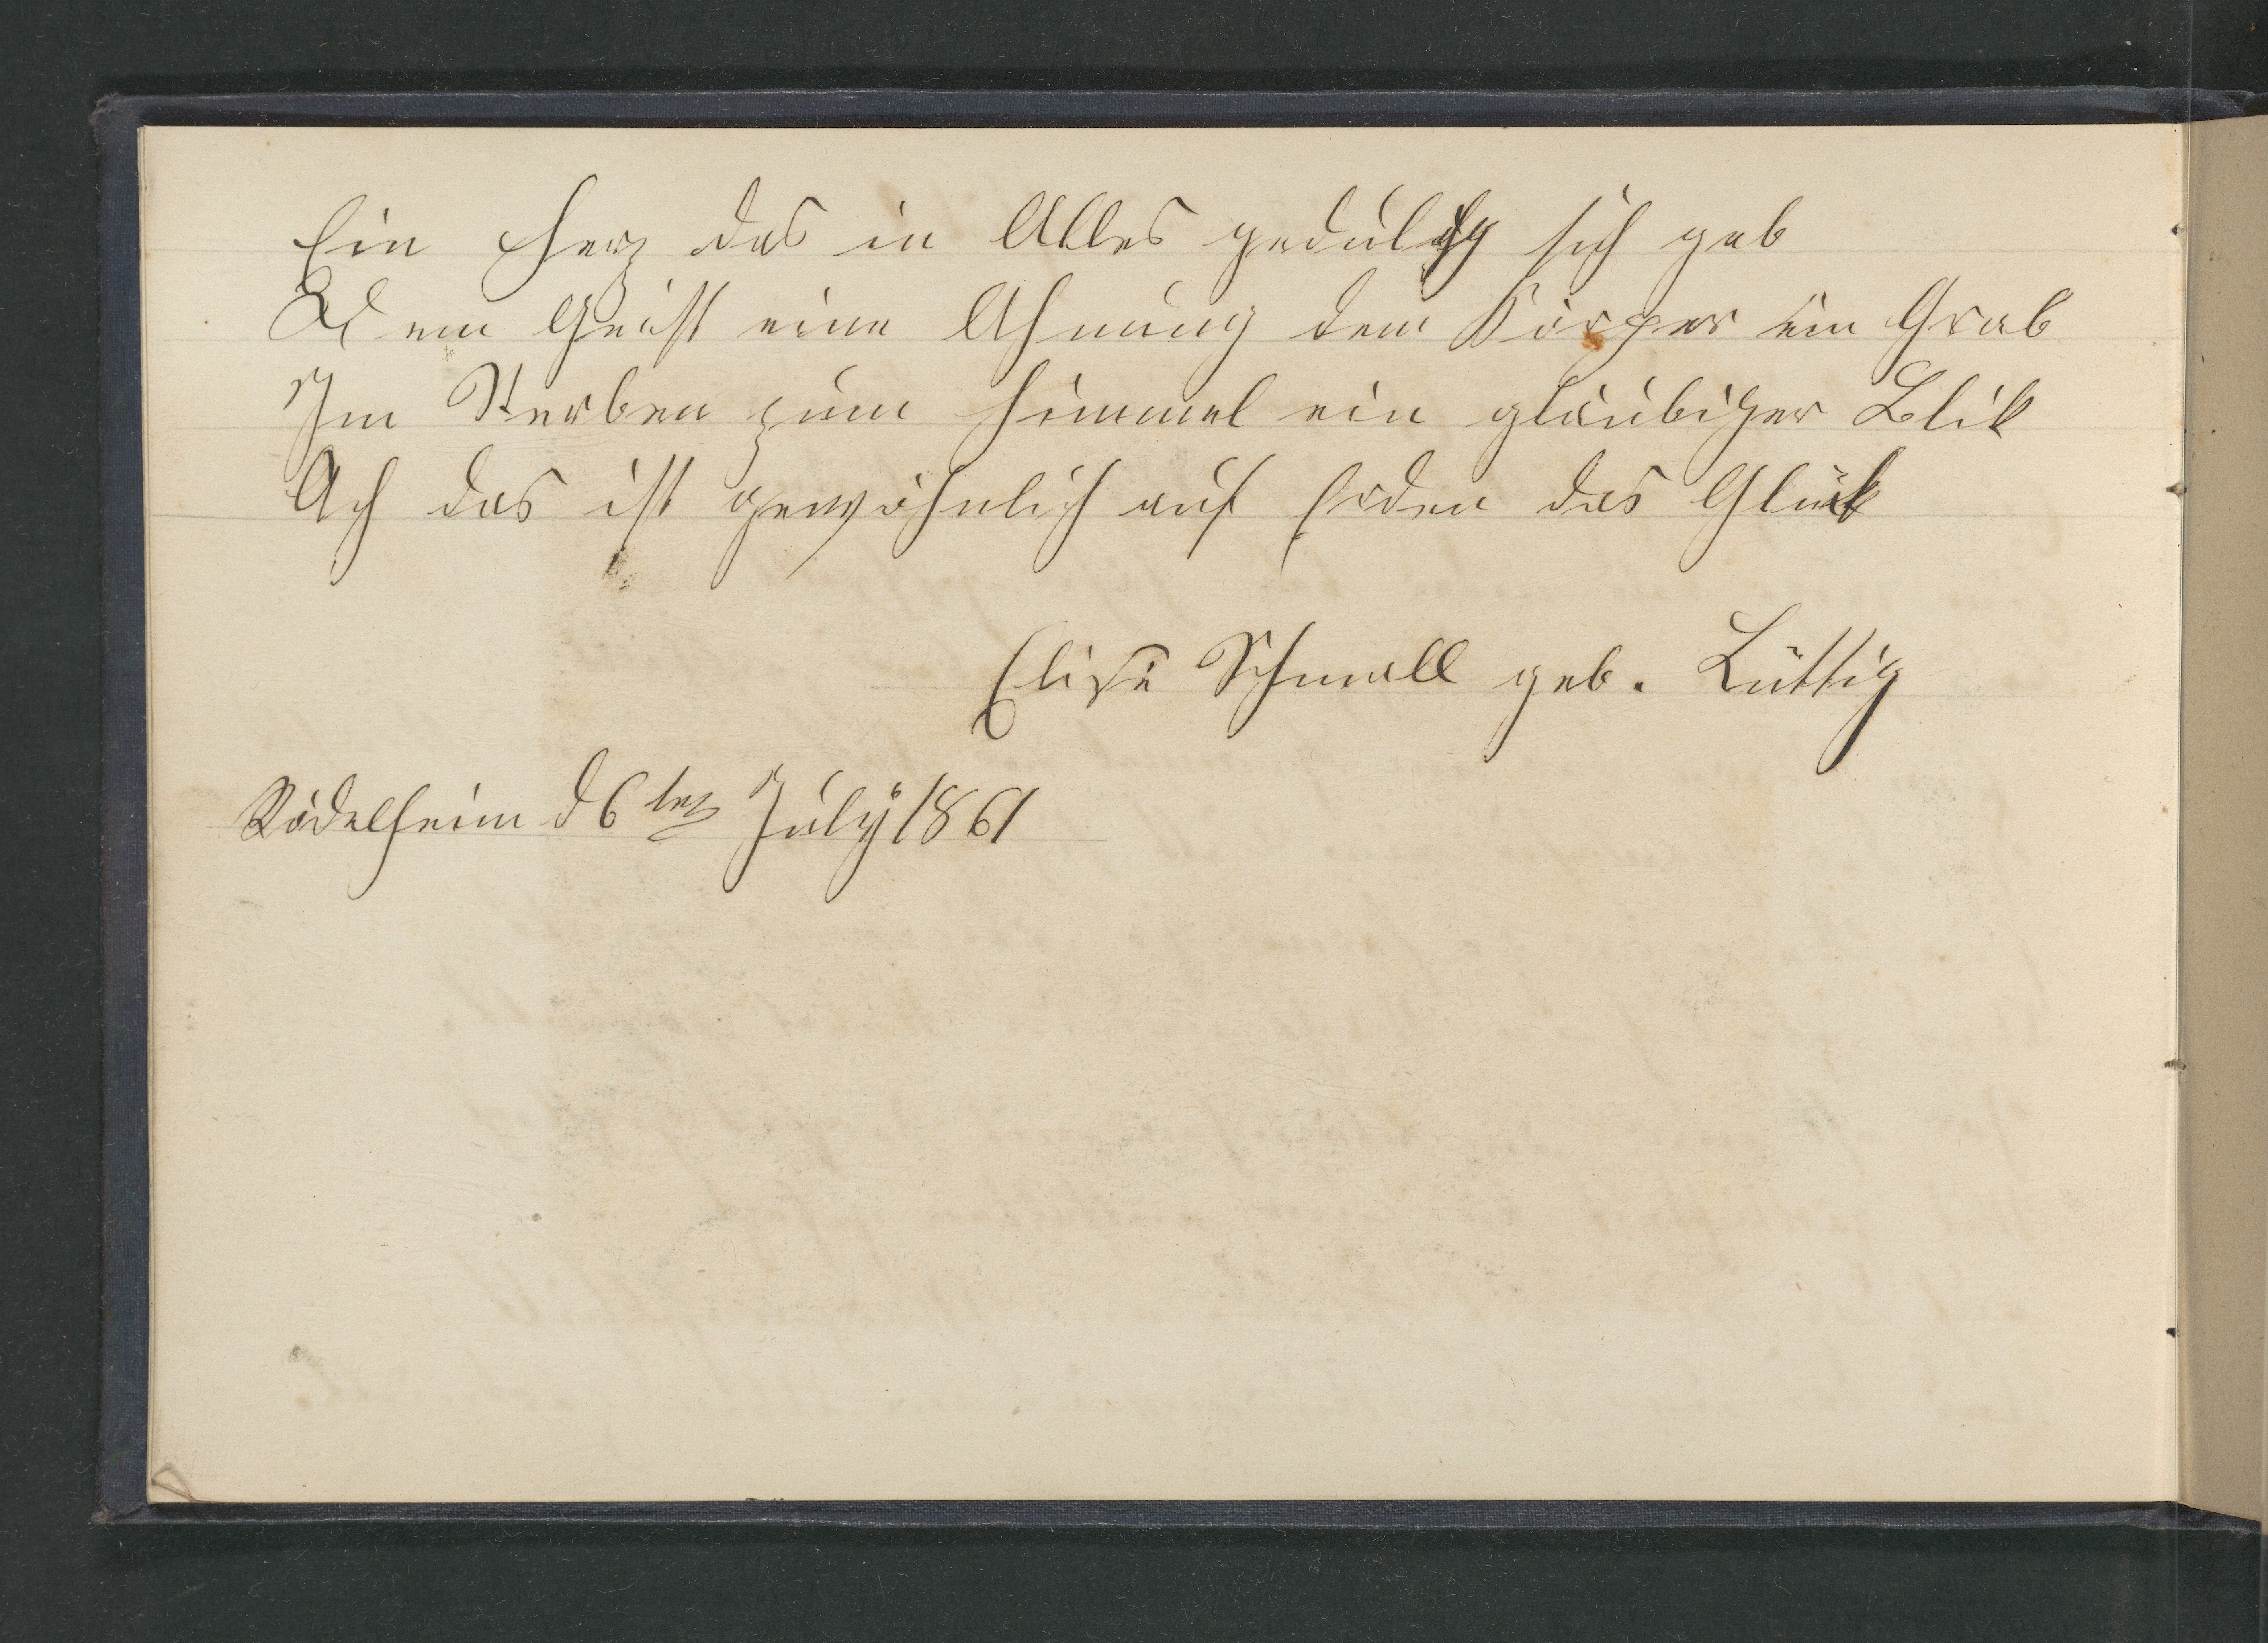 Ein Herz das in Alles geduldig sich gab
Dem Geist eine Ahnung dem Körper ein Grab
Im Sterben zum Himmel ein gläubiger Blik
Ach das ist gewöhnlich auf Erden das Glück
Elise Schmall geb. Lüttig
Rödelheim d 6ten July 1861